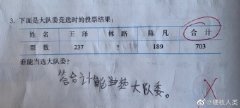 3. 下面是大队委竞选时的投票结果:
姓名 王泽 林路 陈凡 合计
票数 237 ? 189 703
谁能当选大队委?
答合计能当选大队委。
@硬核人类